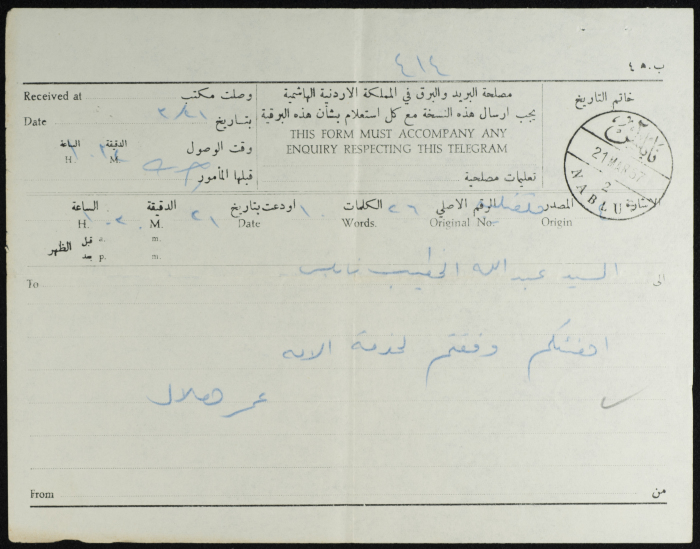 ٤١٤
ب. ٤٥
Received at
وصلت مكتب
مصلحة البريد والبرق في المملكة الاردنية الهاشمية
خاتم التاريخ
Date
بتاريخ
٣/٢١
يجب ارسال هذه النسخة مع كل استعلام بشأن هذه البرقية
THIS FORM MUST ACCOMPANY ANY
ENQUIRY RESPECTING THIS TELEGRAM
الساعة
الدقيقة
وقت الوصول
H.
M.
قبلها المأمور
تعليمات مصلحية
نابلس
21 MAR 57
2
NABLUS
الساعة
الدقيقة
اودعت بتاريخ
الكلمات
الرقم الاصلي
المصدر
الاشارة
H.
M.
٢١
Date
١٠
Words.
٢٦
Original No.
Origin
الظهر
قبل
a.
m.
بعد
p.
m.
To
السيد عبدالله الخطيب نابلس
الى
اهنئكم وفقتم لخدمة الامه
عمر هلال
From
من